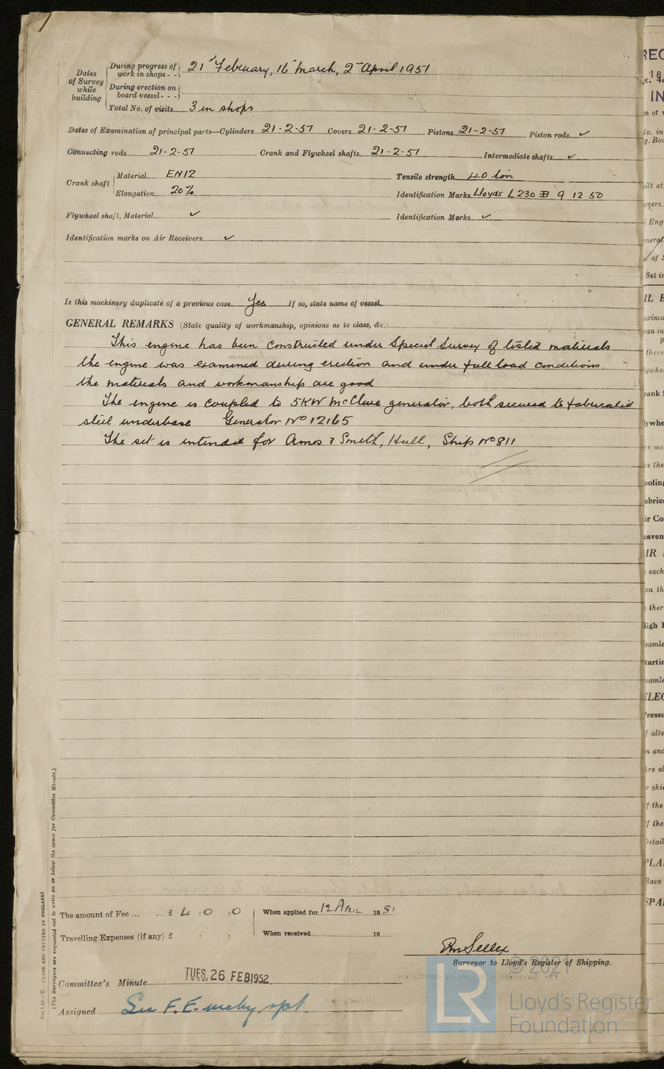 Dates of Survey while building
During progress of work in shops - - 21 February, 16 March, 2 April 1951
During erection on board vessel - - -
Total No. of visits 3 in shops
Dates of Examination of principal parts—Cylinders 21-2-51 Covers 21-2-51 Pistons 21-2-51 Piston rods ✓
Connecting rods 21-2-51 Crank and Flywheel shafts 21-2-51 Intermediate shafts ✓
Crank shaft Material EN12 Tensile strength 40 ton
Elongation 20% Identification Marks Lloyds L230 9 12 50
Flywheel shaft, Material ✓ Identification Marks ✓
Identification marks on Air Receivers ✓
Is this machinery duplicate of a previous case Yes If so, state name of vessel
GENERAL REMARKS (State quality of workmanship, opinions as to class, &c.)
This engine has been constructed under Special Survey of tested materials
the engine was examined during erection and under full load conditions.
the materials and workmanship are good
The engine is coupled to 5KW McClure generator, both secured to fabricated
steel underbase Generator No 12165
The set is intended for Amos & Smith, Hull, Ship No 811
The amount of Fee ... ... £ 4 : 0 : 0 When applied for 12 APRIL 19 51
Travelling Expenses (if any) £ : : When received 19
Surveyor to Lloyd's Register of Shipping.
Committee's Minute TUES. 26 FEB 1952
Assigned See F.E. mchy rpt.
(The Surveyors are requested not to write on or below the space for Committee Minute.)
© 2021
LR
Lloyd's Register
Foundation